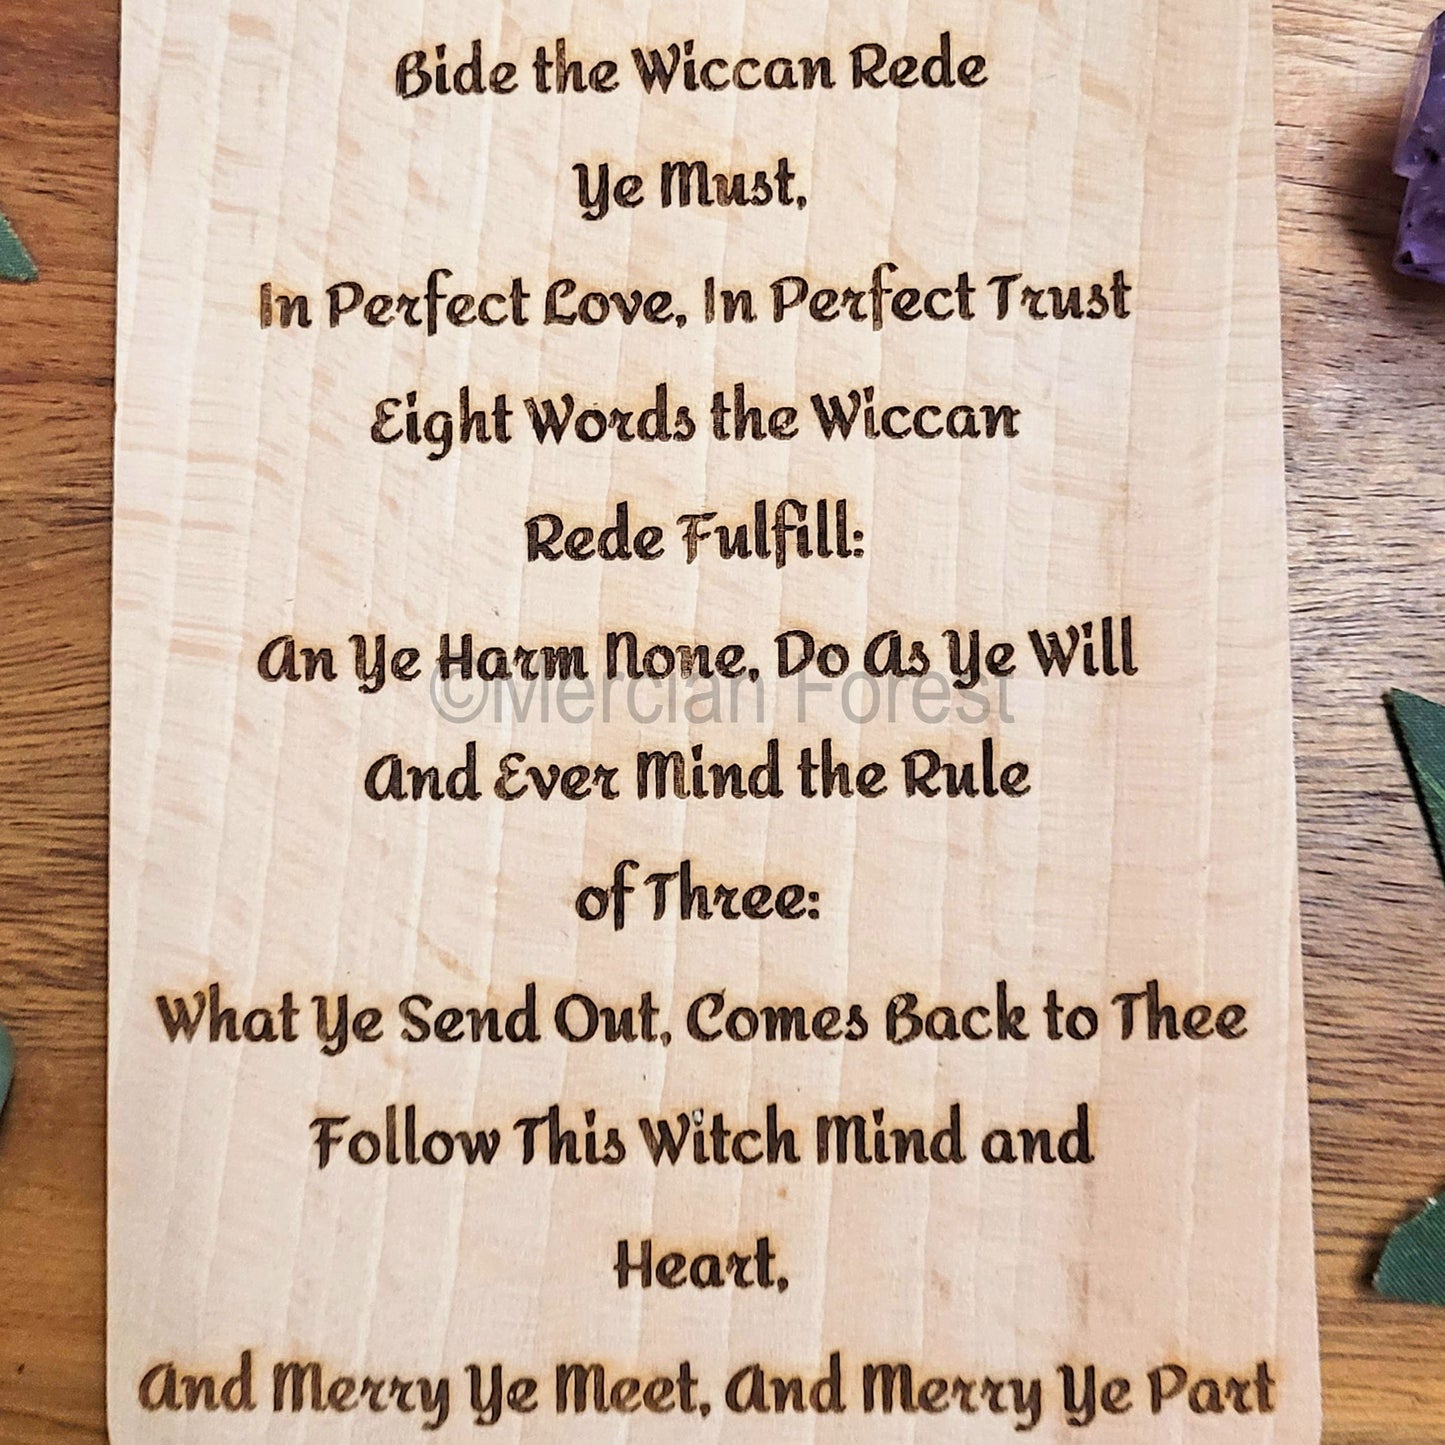 Bide the Wiccan Rede
Ye Must,
In Perfect Love, In Perfect Trust
Eight Words the Wiccan
Rede Fulfill:
An Ye Harm None, Do As Ye Will
©Mercian Forest
And Ever Mind the Rule
of Three:
What Ye Send Out, Comes Back to Thee
Follow This Witch Mind and
Heart,
And Merry Ye Meet, And Merry Ye Part